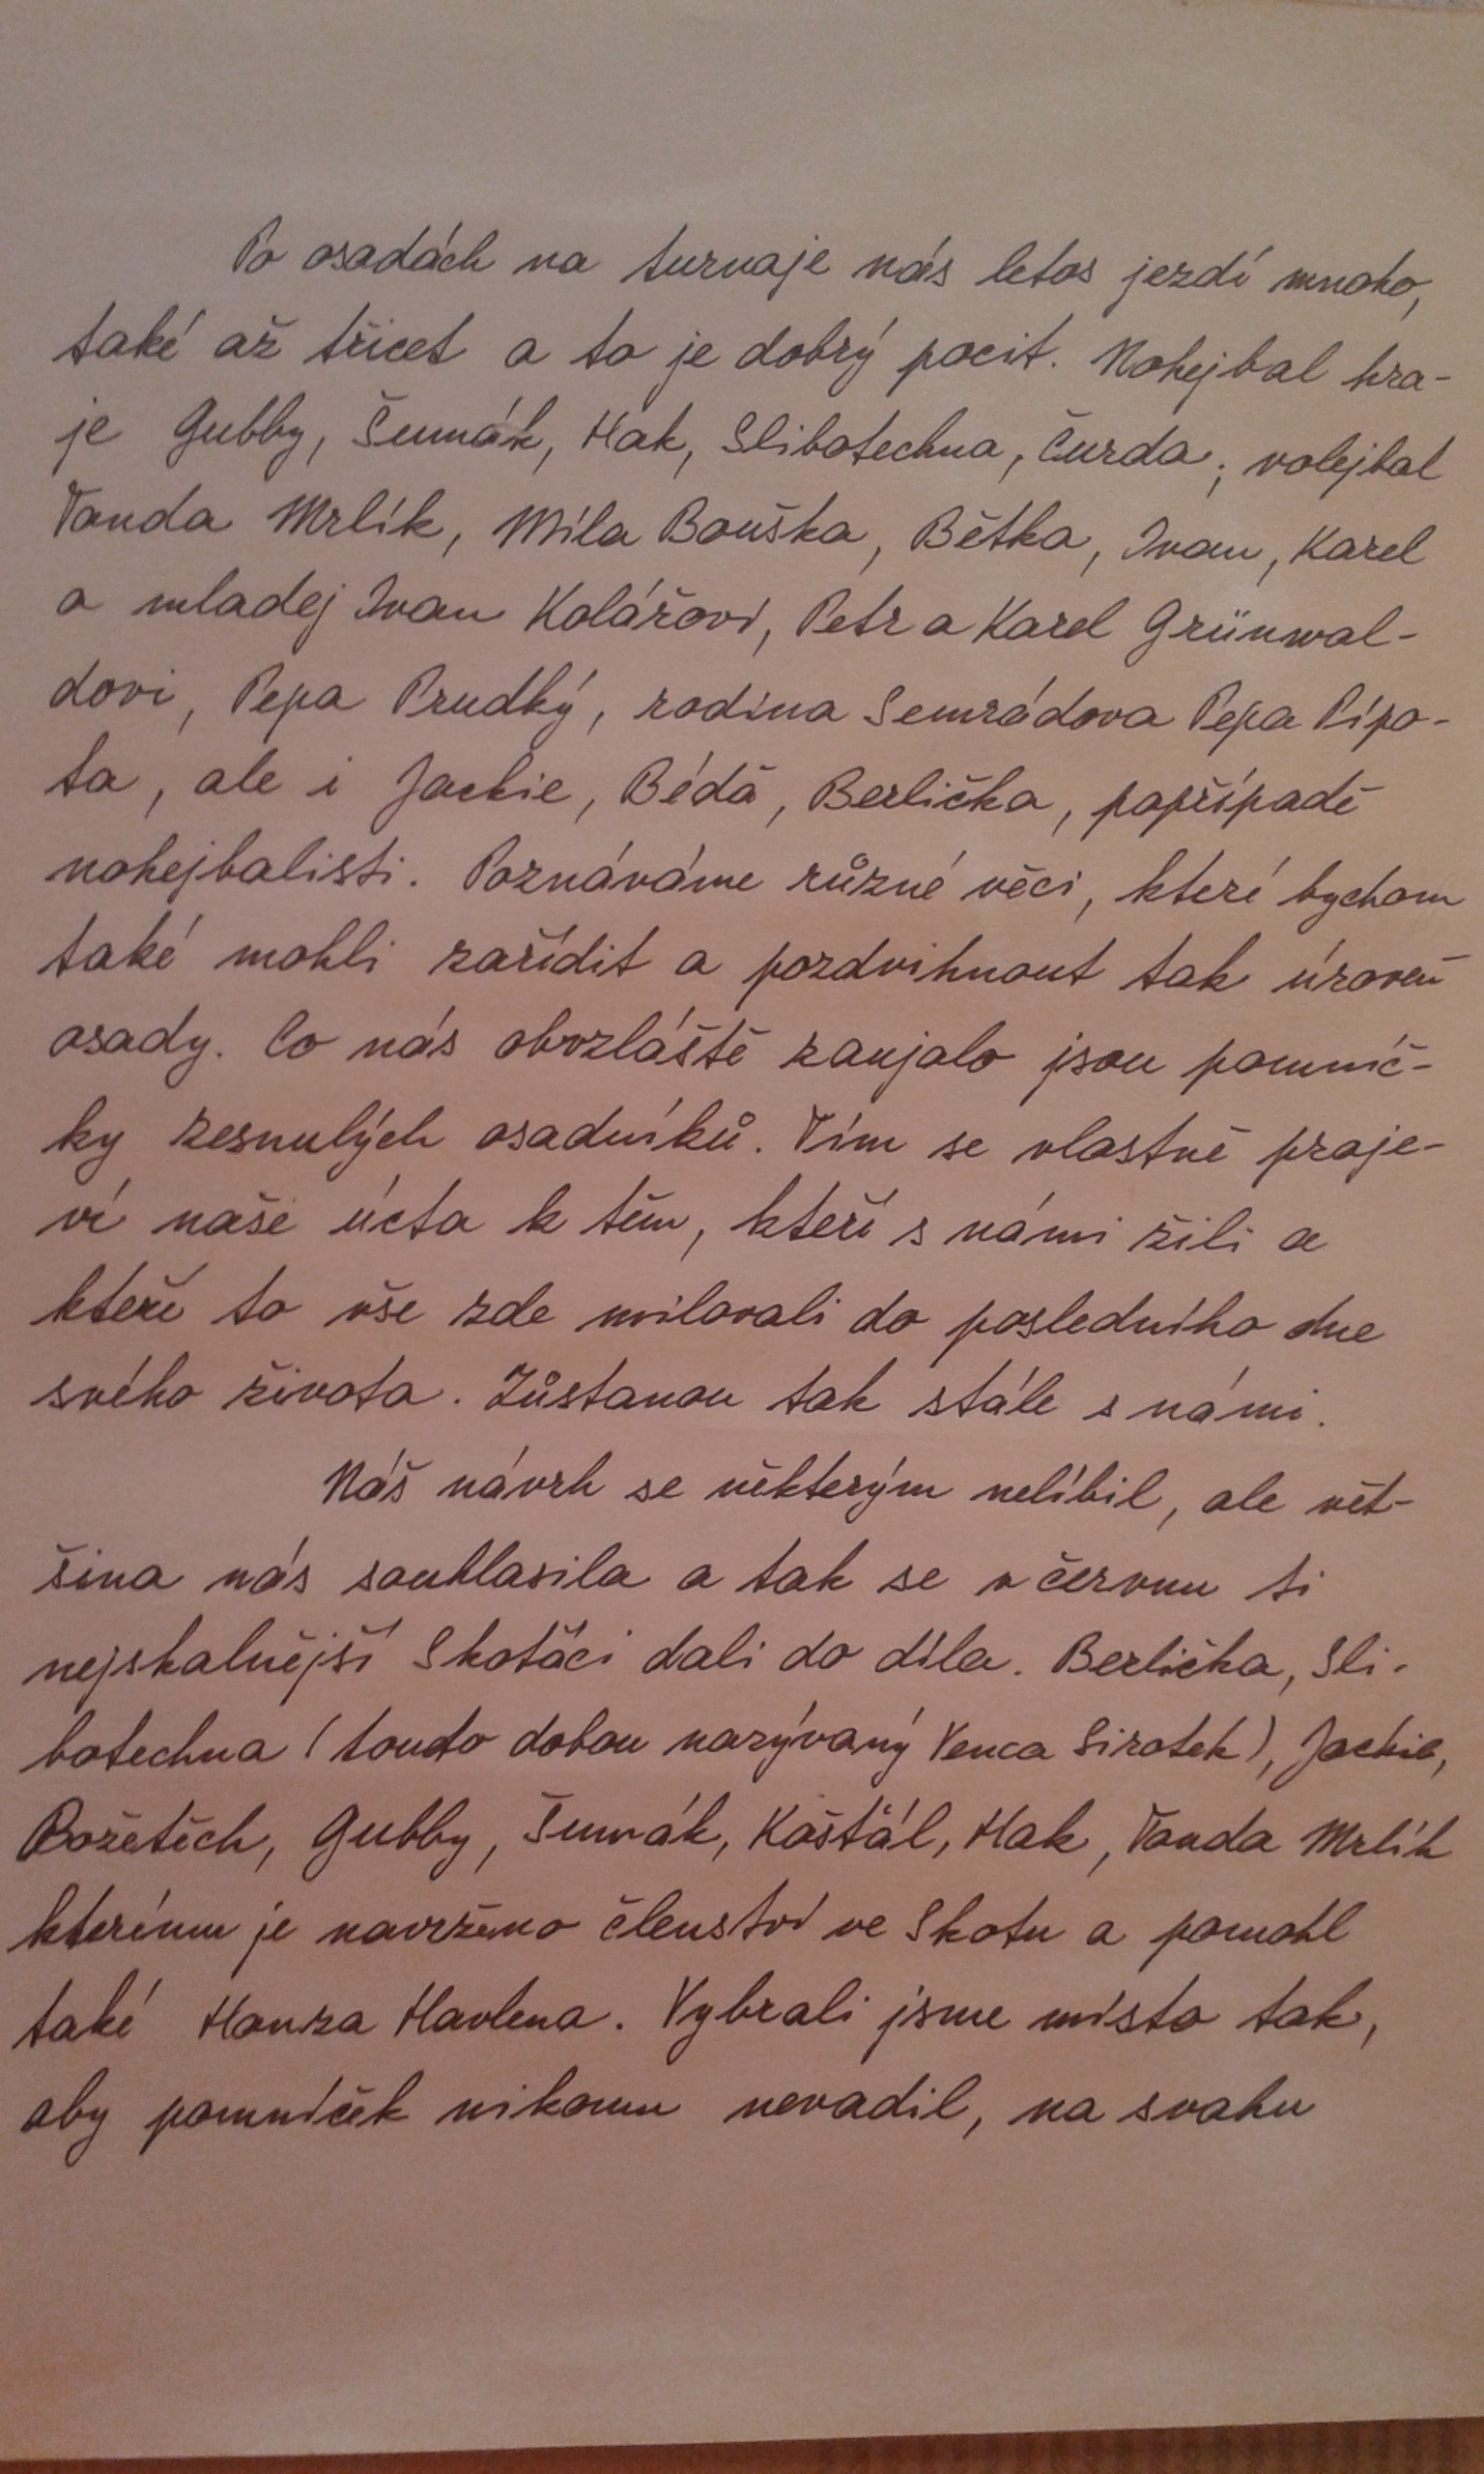 Po osadách na turnaje nás letos jezdí mnoho,
také až třicet a to je dobrý pocit. Nohejbal hra-
je Gubby, Šumák, Hak, Slibotechna, Čurda; volejbal
Vanda Mrlík, Míla Bouška, Bětka, Ivan, Karel
a mladej Ivan Kolářovi, Petr a Karel Grünwal-
dovi, Pepa Prudký, rodina Semrádova Pepa Pípo-
ta, ale i Jackie, Béďa, Berlička, popřípadě
nohejbalisti. Poznáváme různé věci, které bychom
také mohli zařídit a pozdvihnout tak úroveň
osady. Co nás obvzláště zaujalo jsou pomníč-
ky zesnulých osadníků. Tím se vlastně proje-
ví naše úcta k těm, kteří s námi žili a
kteří to vše zde milovali do posledního dne
svého života. Zůstanou tak stále s námi.
Náš návrh se některým nelíbil, ale vět-
šina nás souhlasila a tak se v červnu ti
nejskalnější Skoťáci dali do díla. Berlička, Sli-
botechna (touto dobou nazývaný Venca Sirotek), Jackie,
Božetěch, Gubby, Šumák, Košťál, Hak, Vanda Mrlík
kterému je navrženo členství ve Skotu a pomohl
také Honza Havlena. Vybrali jsme místo tak,
aby pomníček nikomu nevadil, na svahu